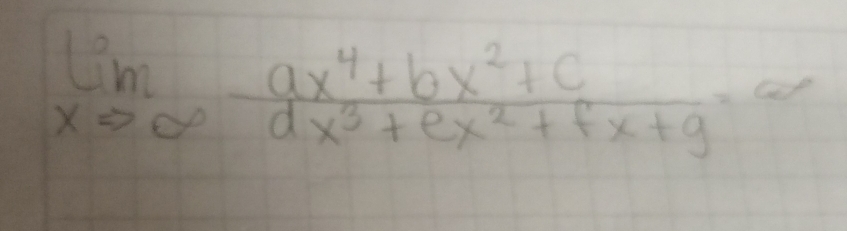 lim ax⁴+bx²+c = ∞
x⇒∞ dx³+ex²+fx+g